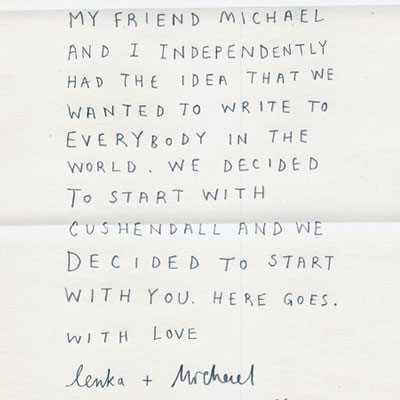 MY FRIEND MICHAEL
AND I INDEPENDENTLY
HAD THE IDEA THAT WE
WANTED TO WRITE TO
EVERYBODY IN THE
WORLD. WE DECIDED
TO START WITH
CUSHENDALL AND WE
DECIDED TO START
WITH YOU. HERE GOES.
WITH LOVE
lenka + Michael